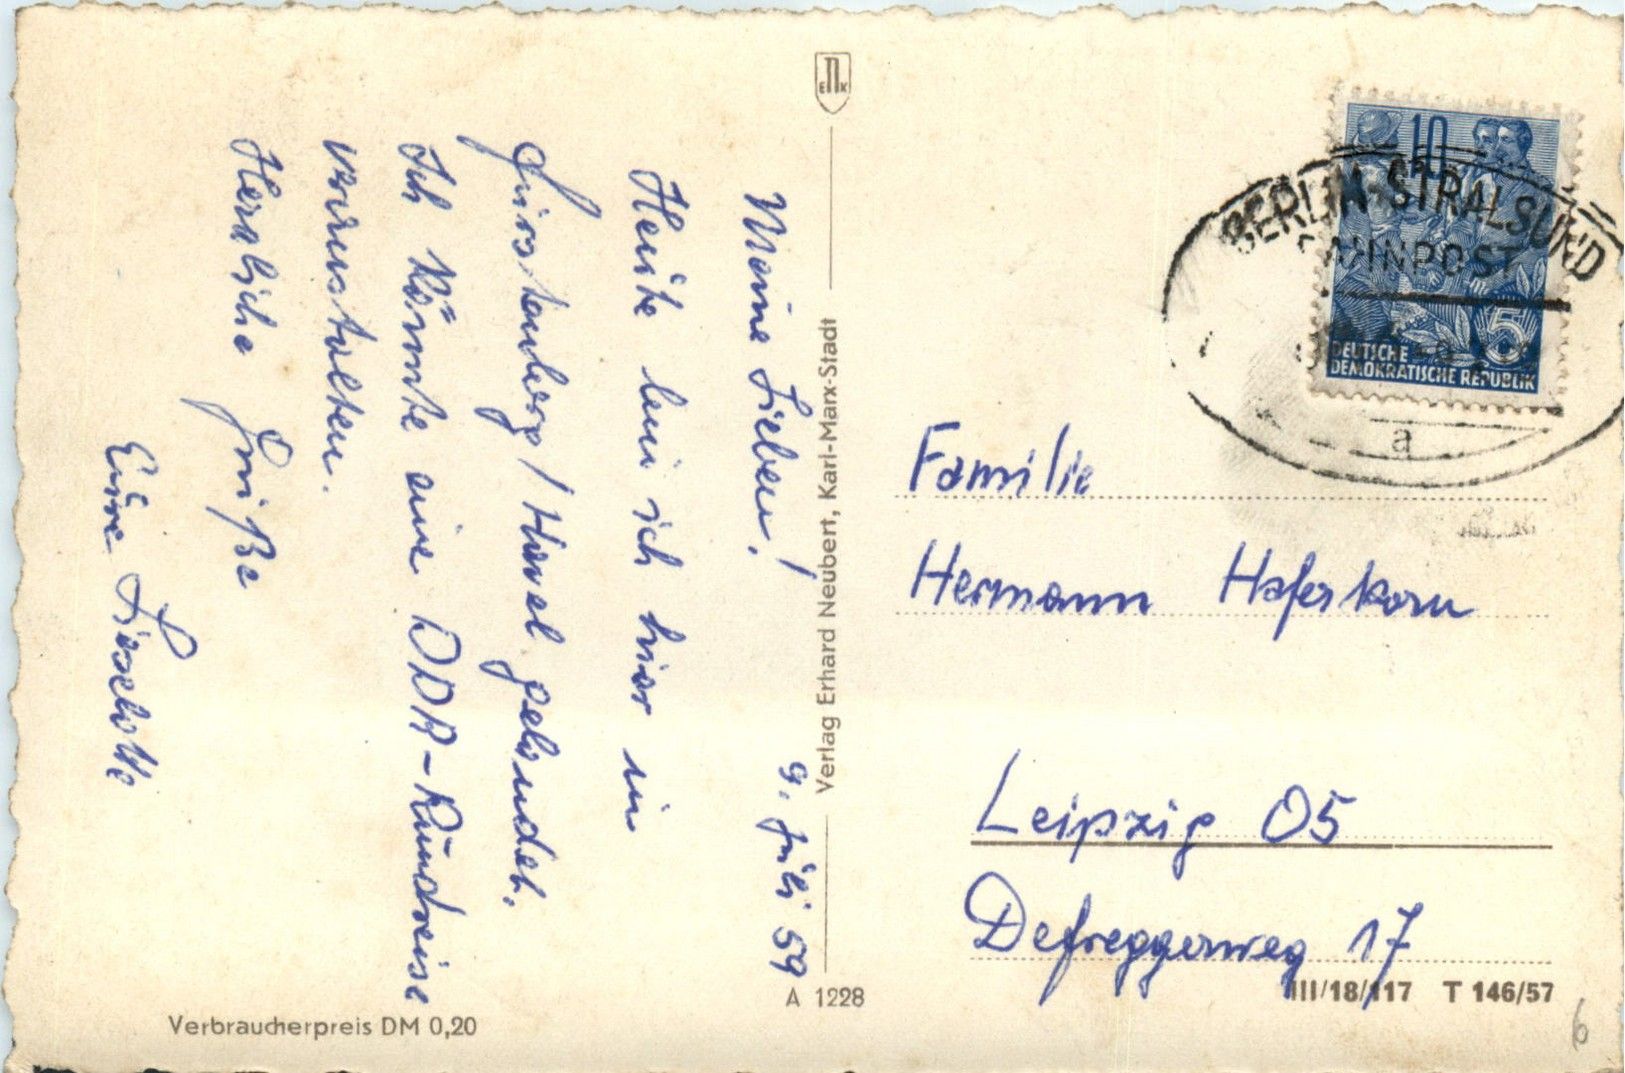 9. Juli 59
Meine Lieben!
Heute bin ich hier in
Fürstenberg/Havel gelandet.
Ich könnte eine DDR-Rundreise
veranstalten.
Herzliche Grüße
Eure Liselotte
E N K
Verlag Erhard Neubert, Karl-Marx-Stadt
A 1228
Verbraucherpreis DM 0,20
10
5
DEUTSCHE
DEMOKRATISCHE REPUBLIK
BERLIN-STRALSUND
BAHNPOST
a
Familie
Hermann Haferkorn
Leipzig 05
Defreggerweg 17
III/18/117 T 146/57
6